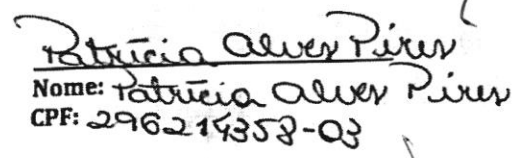 Patrícia Alves Pires
Nome: Patrícia Alves Pires
CPF: 296214358-03